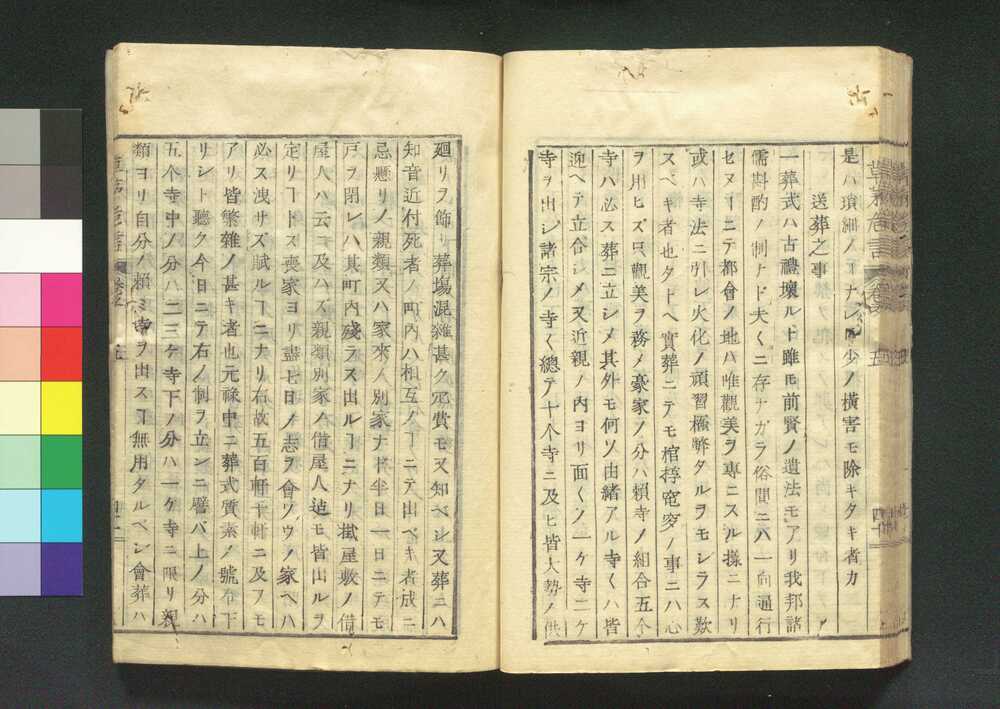 是ハ瑣細ノヿナレ𪜈少ノ横害モ除キタキ者カ
送葬之事
一葬式ハ古禮壞ルト雖モ前賢ノ遺法モアリ我邦諸
儒斟酌ノ制ナド夫〱ニ存ナガラ俗間ニハ一向通行
セヌヿニテ都會ノ地ハ唯觀美ヲ專ニスル樣ニナリ
或ハ寺法ニ引レ火化ノ頑習極弊タルヲモシラス歎
スベキ者也タトヘ實葬ニテモ棺椁窀穸ノ事ニハ心
ヲ用ヒズ只觀美ヲ務メ豪家ノ分ハ頼寺ノ組合五个
寺ハ必ス葬ニ立シメ其外モ何ソ由緒アル寺〱ハ皆
迎ヘテ立合シメ又近親ノ内ヨリ面〱ノ一ケ寺二ケ
寺ヲ出シ諸宗ノ寺〱總テ十个寺ニ及ヒ皆大勢ノ供
廻リヲ飾リ葬塲混雜甚ク冗費モ又知ベシ又葬ニハ
知音近付死者ノ町内ハ相互ノヿニテ出ベキ者成ニ
忌懸リノ親類又ハ家來ノ別家ナド半日一日ニテモ
戸ヲ閉レハ其町内殘ラス出ルヿニナリ掛屋敷ノ借
屋人ハ云ニ及ハズ親類別家ノ借屋人迠モ皆出ルヲ
定リヿトス喪家ヨリ盡七日ノ志ヲ會ソウノ家ヘハ
必ス洩サズ賦ルヿニナリ右故五百軒千軒ニ及フモ
アリ皆繁雜ノ甚キ者也元祿中ニ葬式質素ノ號令下
リシト聽ク今日ニテ右ノ制ヲ立ンニ譬バ上ノ分ハ
五个寺中ノ分ハ二三ケ寺下ノ分ハ一ケ寺ニ限リ親
類ヨリ自分ノ頼ミ寺ヲ出スヿ無用タルベシ會葬ハ
草茅危言 卷之 五